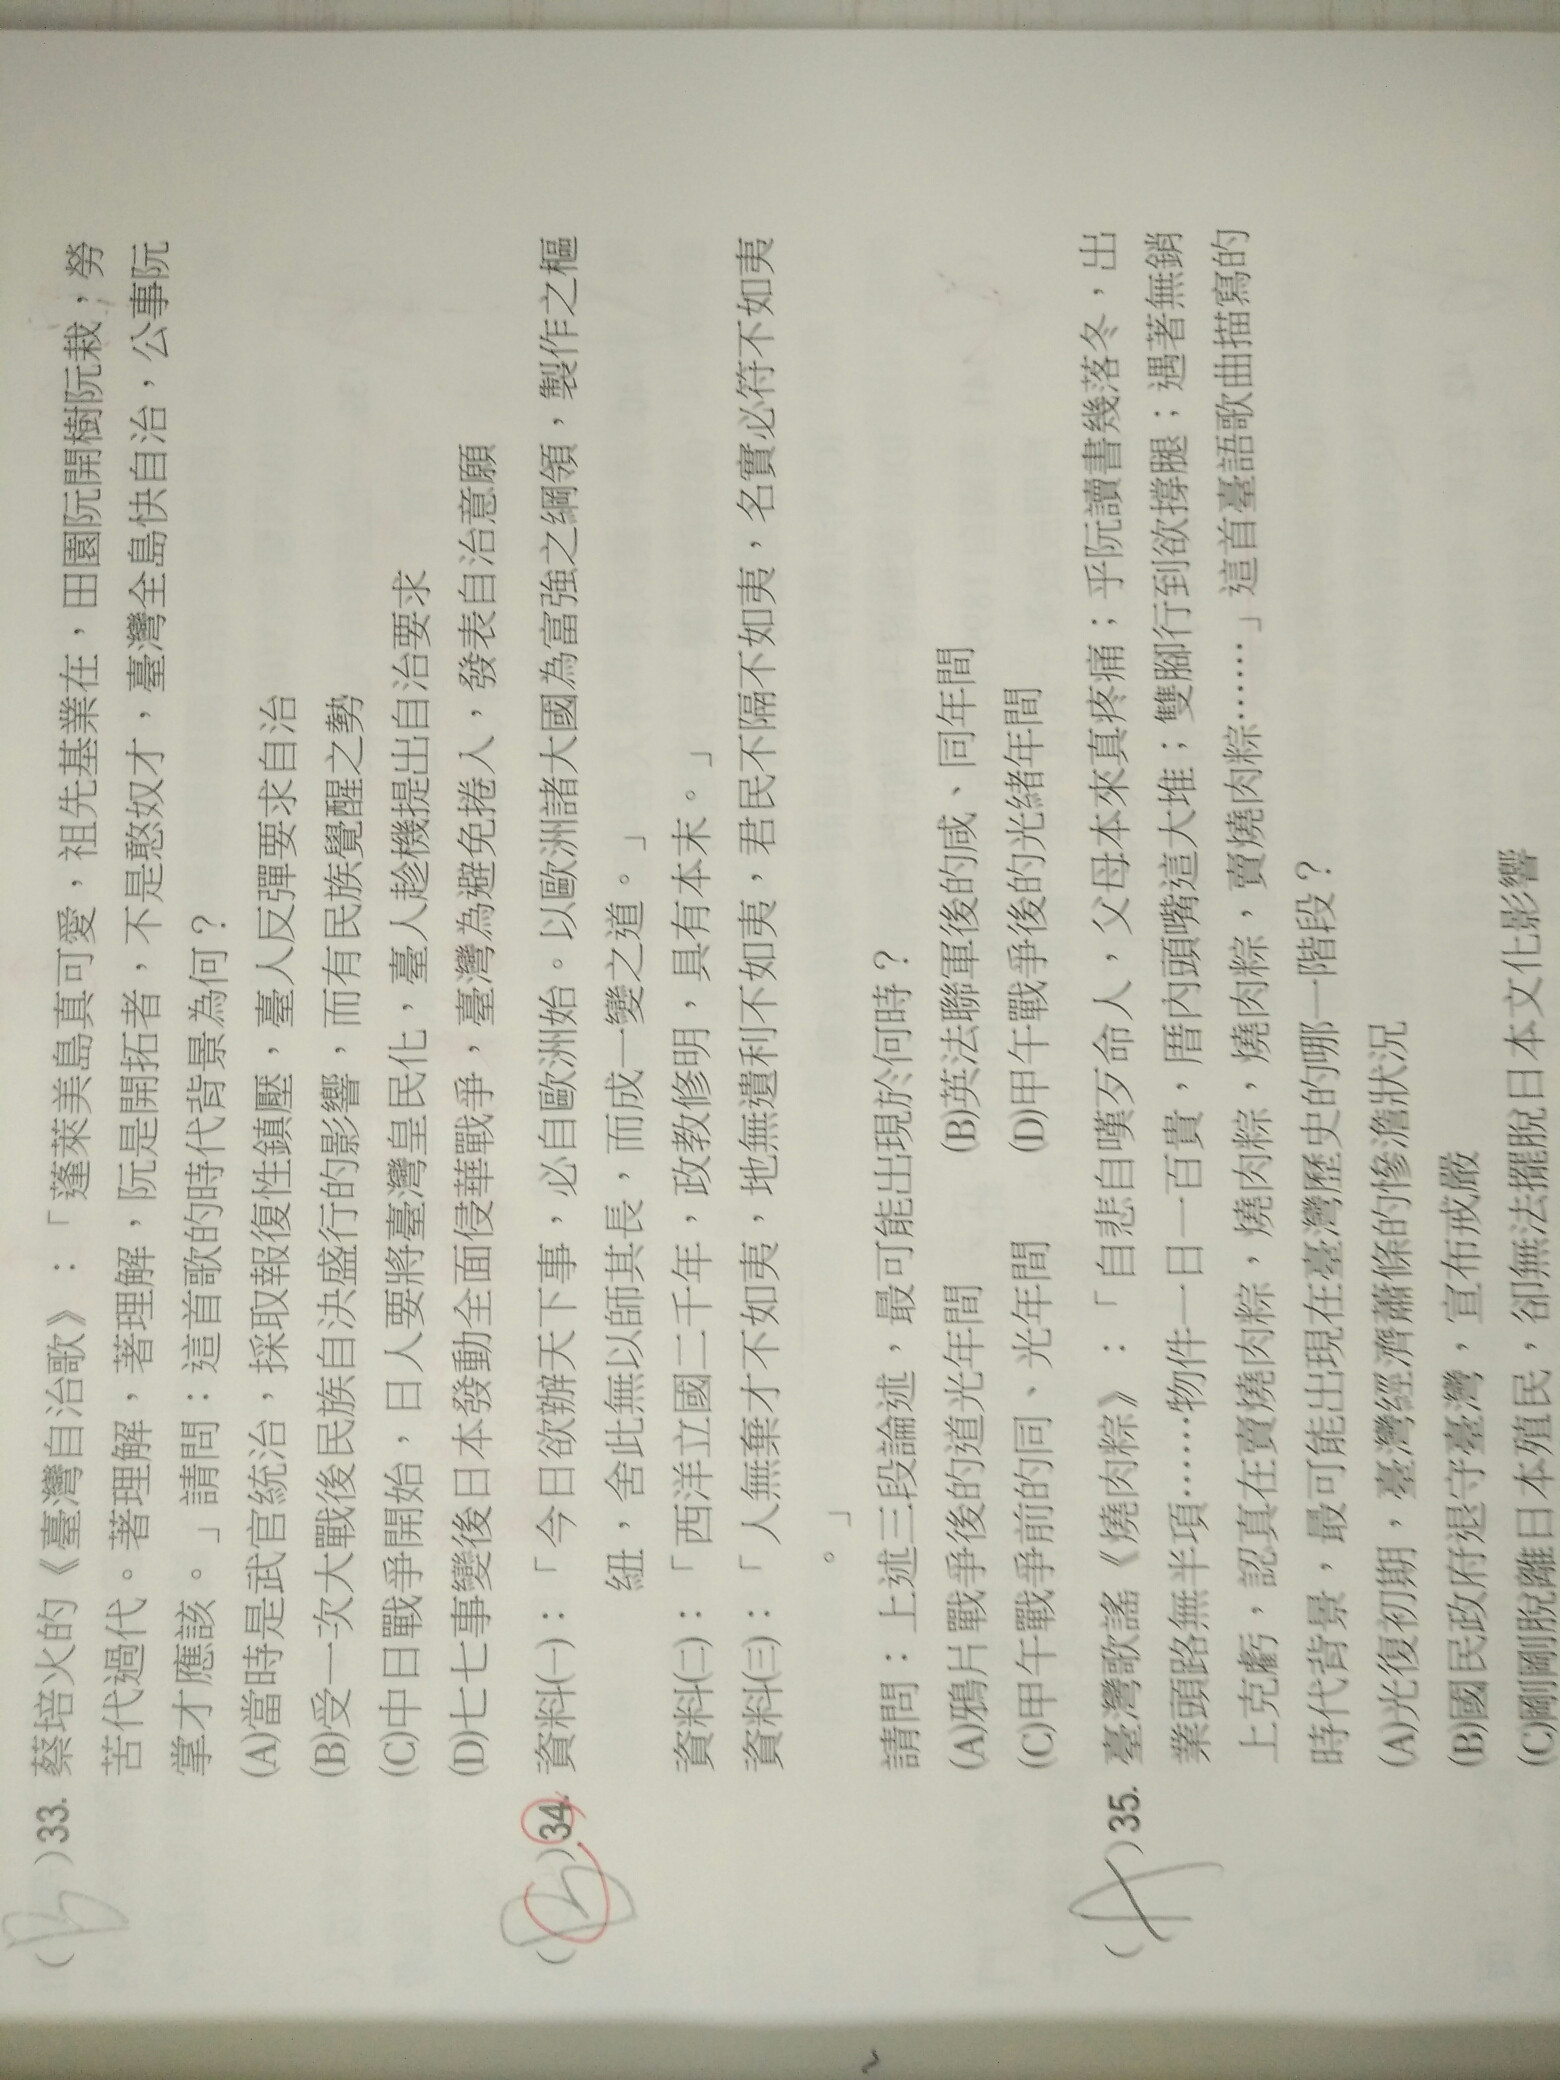 (B)33. 蔡培火的《臺灣自治歌》:「蓬萊美島真可愛，祖先基業在，田園阮開樹阮栽，勞
苦代過代。著理解，著理解，阮是開拓者，不是憨奴才，臺灣全島快自治，公事阮
掌才應該。」請問：這首歌的時代背景為何？
(A)當時是武官統治，採取報復性鎮壓，臺人反彈要求自治
(B)受一次大戰後民族自決盛行的影響，而有民族覺醒之勢
(C)中日戰爭開始，日人要將臺灣皇民化，臺人趁機提出自治要求
(D)七七事變後日本發動全面侵華戰爭，臺灣為避免捲入，發表自治意願
(B)34. 資料㈠：「今日欲辦天下事，必自歐洲始。以歐洲諸大國為富強之綱領，製作之樞
紐，舍此無以師其長，而成一變之道。」
資料㈡：「西洋立國二千年，政教修明，具有本末。」
資料㈢：「人無棄才不如夷，地無遺利不如夷，君民不隔不如夷，名實必符不如夷
。」
請問：上述三段論述，最可能出現於何時？
(A)鴉片戰爭後的道光年間 (B)英法聯軍後的咸、同年間
(C)甲午戰爭前的同、光年間 (D)甲午戰爭後的光緒年間
(A)35. 臺灣歌謠《燒肉粽》:「自悲自嘆歹命人，父母本來真疼痛；乎阮讀書幾落冬，出
業頭路無半項……物件一日一百貴，厝內頭嘴這大堆；雙腳行到欲撐腿；遇著無銷
上克虧，認真在賣燒肉粽，燒肉粽，燒肉粽，賣燒肉粽……」這首臺語歌曲描寫的
時代背景，最可能出現在臺灣歷史的哪一階段？
(A)光復初期，臺灣經濟蕭條的慘澹狀況
(B)國民政府退守臺灣，宣布戒嚴
(C)剛剛脫離日本殖民，卻無法擺脫日本文化影響